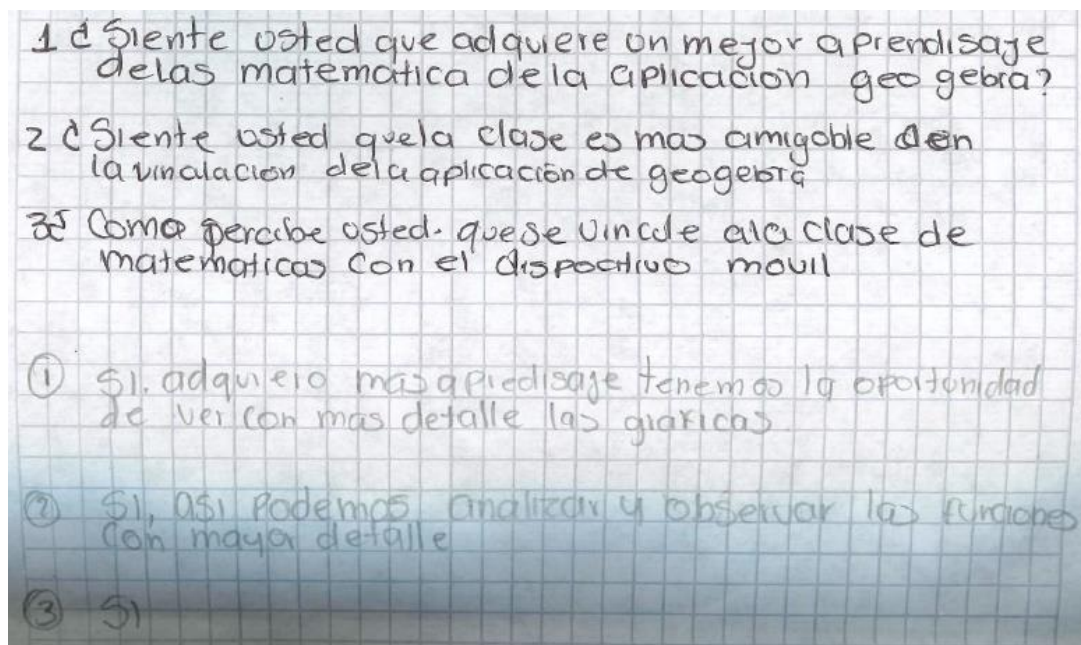 1 ¿Siente usted que adquiere un mejor aprendisaje
delas matematica dela aplicación geo gebra?
2 ¿Siente usted quela clase es mas amigoble en
la vinalacion dela aplicación de geogebra
3 ¿Como percibe usted. quese vincule ala clase de
matematicas con el dispocitivo movil
① SI. adquiero mas apredisaje tenemos la oportunidad
de ver con mas detalle las graficas
② SI, asi Podemos analizar y observar las funciones
con mayor detalle
③ SI